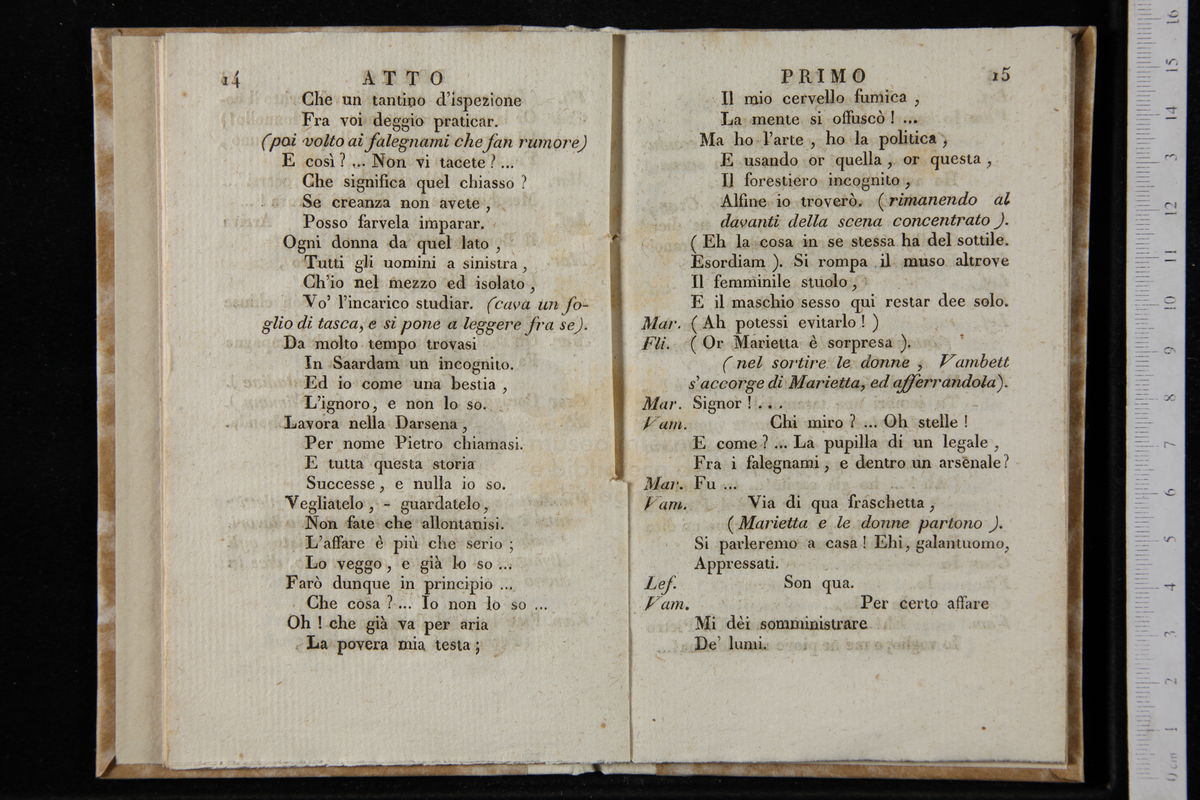 14 ATTO
Che un tantino d'ispezione
Fra voi deggio praticar.
(poi volto ai falegnami che fan rumore)
E così ? ... Non vi tacete ? ...
Che significa quel chiasso ?
Se creanza non avete ,
Posso farvela imparar.
Ogni donna da quel lato ,
Tutti gli uomini a sinistra ,
Ch'io nel mezzo ed isolato ,
Vo' l'incarico studiar. (cava un fo-
glio di tasca, e si pone a leggere fra se).
Da molto tempo trovasi
In Saardam un incognito.
Ed io come una bestia ,
L'ignoro, e non lo so.
Lavora nella Darsena ,
Per nome Pietro chiamasi.
E tutta questa storia
Successe , e nulla io so.
Vegliatelo , - guardatelo ,
Non fate che allontanisi.
L'affare è più che serio ;
Lo veggo , e già lo so ...
Farò dunque in principio ...
Che cosa ? ... Io non lo so ...
Oh ! che già va per aria
La povera mia testa ;
PRIMO 15
Il mio cervello fumica ,
La mente si offuscò ! ...
Ma ho l'arte , ho la politica ,
E usando or quella , or questa ,
Il forestiero incognito ,
Alfine io troverò. ( rimanendo al
davanti della scena concentrato ).
( Eh la cosa in se stessa ha del sottile.
Esordiam ). Si rompa il muso altrove
Il femminile stuolo ,
E il maschio sesso qui restar dee solo.
Mar. ( Ah potessi evitarlo ! )
Fli. ( Or Marietta è sorpresa ).
( nel sortire le donne , Vambett
s'accorge di Marietta, ed afferrandola).
Mar. Signor ! . . .
Vam. Chi miro ? ... Oh stelle !
E come ? ... La pupilla di un legale ,
Fra i falegnami , e dentro un arsenale?
Mar. Fu ...
Vam. Via di qua fraschetta ,
( Marietta e le donne partono ).
Si parleremo a casa ! Ehi, galantuomo,
Appressati.
Lef. Son qua.
Vam. Per certo affare
Mi dèi somministrare
De' lumi.